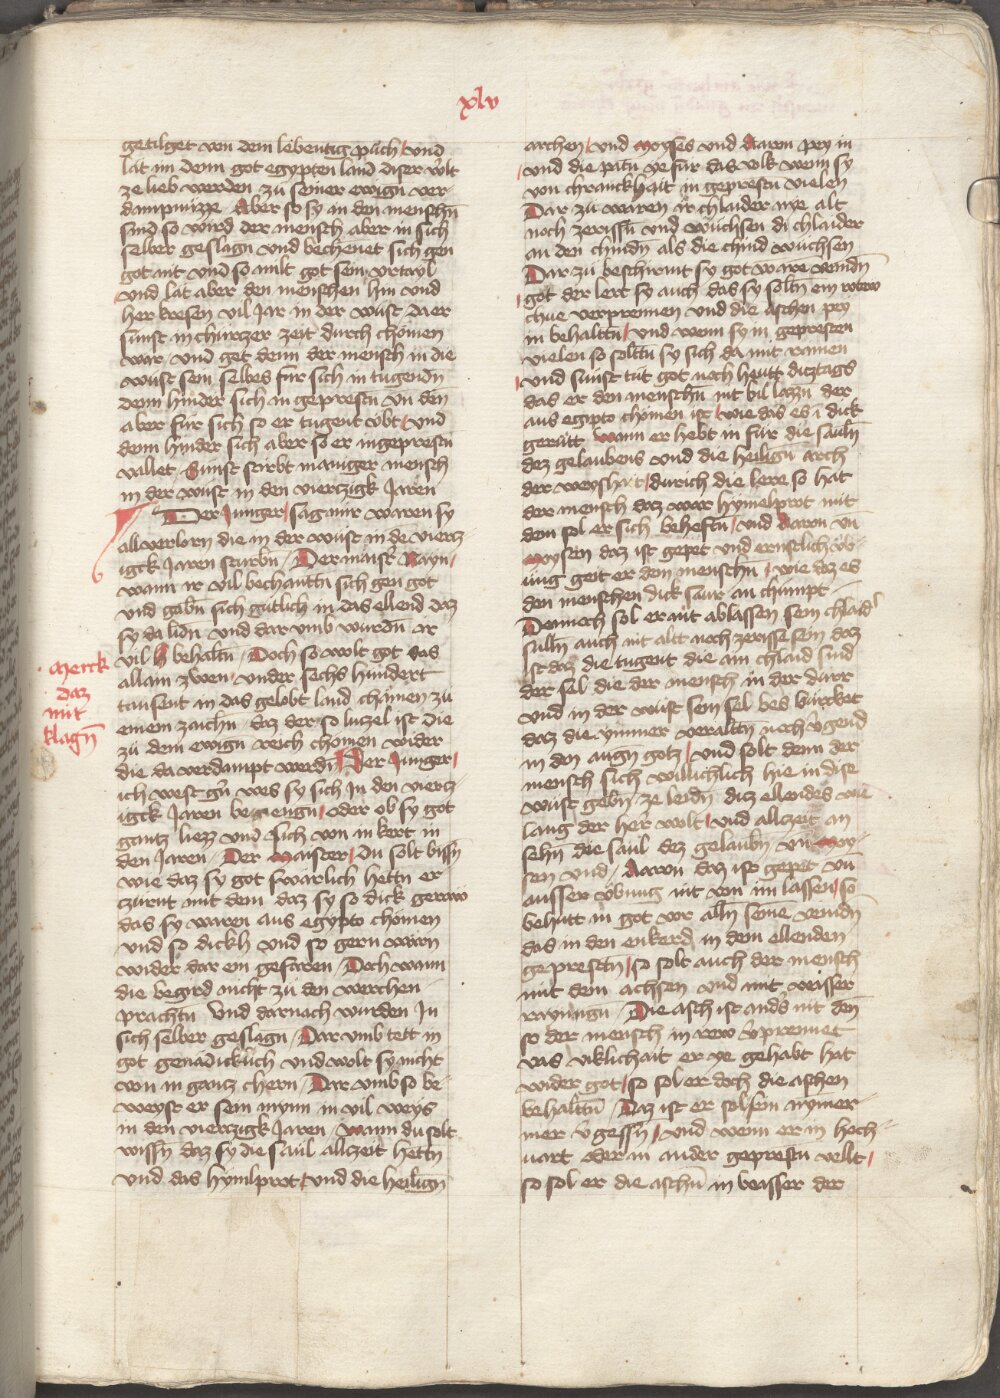 xlv
getilget von dem lebentig puch / vnd
lat im denn got egypten land diser werlt
ze lieb werden zu seiner ewigñ ver-
dampnuzze / Aber so sy in den menschñ
sind so wird der mensch aber in sich
selber geslagñ vnd bechennet sich gen
got mit vnd so milt got sein vrtayl
vnd lat aber den menschen hin vnd
her kresen vil jar in der wust da er
sunst in churczer zeit durch chomen
war / vnd get denn der mensch in die
wust sein selbes fur sich in tugendñ
denn hinder sich in geprestñ vñ den
aber fur sich so er tugent vbt / vnd
denn hinder sich aber so er in geprestñ
vallet / Sunst stirbt maniger mensch
in der wust in den vierczigk jaren
Der junger / sag mir waren sy
all verlorn die in der wust in dē viercz
igck jaren sturbñ / Der maistˀ Nayn /
wann ir vil bechantñ sich gen got
vnd gabñ sich gutlich in das ellend daz
sy da lidñ vnd dar vmb wurdñ ir
vil behaltñ / Doch so wolt got das
allain zwen vnder sechs hundert
tausent in das gelobt land chamen zu
einem zaichñ daz der so luczel ist die
zu dem ewigñ reich chomen wider
die da verdampt werdñ Der junger /
ich west gñ wes sy sich in den viercz
igck jaren begiengñ / oder ob sy got
gantz liezz vnd sich von in kert in
den jaren / Der maister / Du solt wissñ
wie daz sy got swarlich hettñ er
zurnt mit dem daz sy so dick gerow
das sy waren aus egypto chomen
vnd so dickh vnd so gern warn
wider dar ein gefaren / Doch wann
die begird nicht zu den werchen
prachtñ vnd darnach wurden in
sich selber geslagñ / Dar vmb tett in
got genadicklich vnd wolt sy nicht
von in gantz chern / Dar vmb so be-
weyst er sein mynn in vil weys
in den vierczigk jaren / Wann du solt
wissñ daz sy die saul allczeit hettñ
vnd das hymlprot / vnd die heiligñ
Merck
daz
mit
klagñ
archen / vnd Moyses vnd Aaron pey in
vnd die patñ ye fur das volk wenn sy
von chranckhait in geprestñ vielen
Dar zu waren ir chlaider nye alt
noch zerissñ vnd wuchsen di chlaider
an den chindñ als die chind wuchsen
Dar zu beschirmt sy got vor iren veindñ
got der lert sy auch das sy soltñ ein rotew
chue verprennen vnd die aschen pey
in behalttñ / vnd wenn sy in gepresten
vielen so solttñ sy sich da mit rainen
vnd sunst tut got noch heutt ditztags
das er den menschñ nit wil lazzñ der
aus egipto chomen ist / wie das es ī dick
gerutt wann er hebt in fur die saulñ
dez gelaubens vnd die heiligñ arch
der weyshait / durich die lere so hat
der mensch daz war hymelprot mit
dem sol er sich beheftñ / vnd Aaron vñ
Moysen daz ist gepet vnd ernstlich vb-
ung geit er dem menschñ / wie daz es
den menschen dick saur an chumpt
Dennoch sol er nit ablassen sein chlaidˀ
sullñ auch nit altt noch zerisse sein daz
ist daz die tugent die ain chlaid sind
der sel die der mensch in der durr
vnd in der wust sein sel bes wurcket
daz die ymmer veraltñ noch vˀgend
in den augñ gotz / vnd solt denn der
mensch sich willichlich hie in dise
wust gebñ ze leidñ ditz ellendes wie
lang der her wolt / vnd allczeit an
sehñ die saul dez gelaubñ vñ Moy-
sen vnd / Aaron daz ist gepet vñ
ausser vbung nit von im lassen / so
behutt in got vor allñ seine veindñ
das in den enkerd in dem ellenden
geprestñ / so solt auch der mensch
mit dem aschsen vnd mit wasser
rayningñ / Die asch ist andˀs nit den
so der mensch in rew vˀprennet
was viklichait er ye gehabt hat
wider got / so sol er doch die aschen
behalttñ / Daz ist er sol sein nymer
mer vˀgessñ / vnd wenn er in hoch-
uart oder in ander geprestñ vellt /
so sol er die aschñ in wasser der